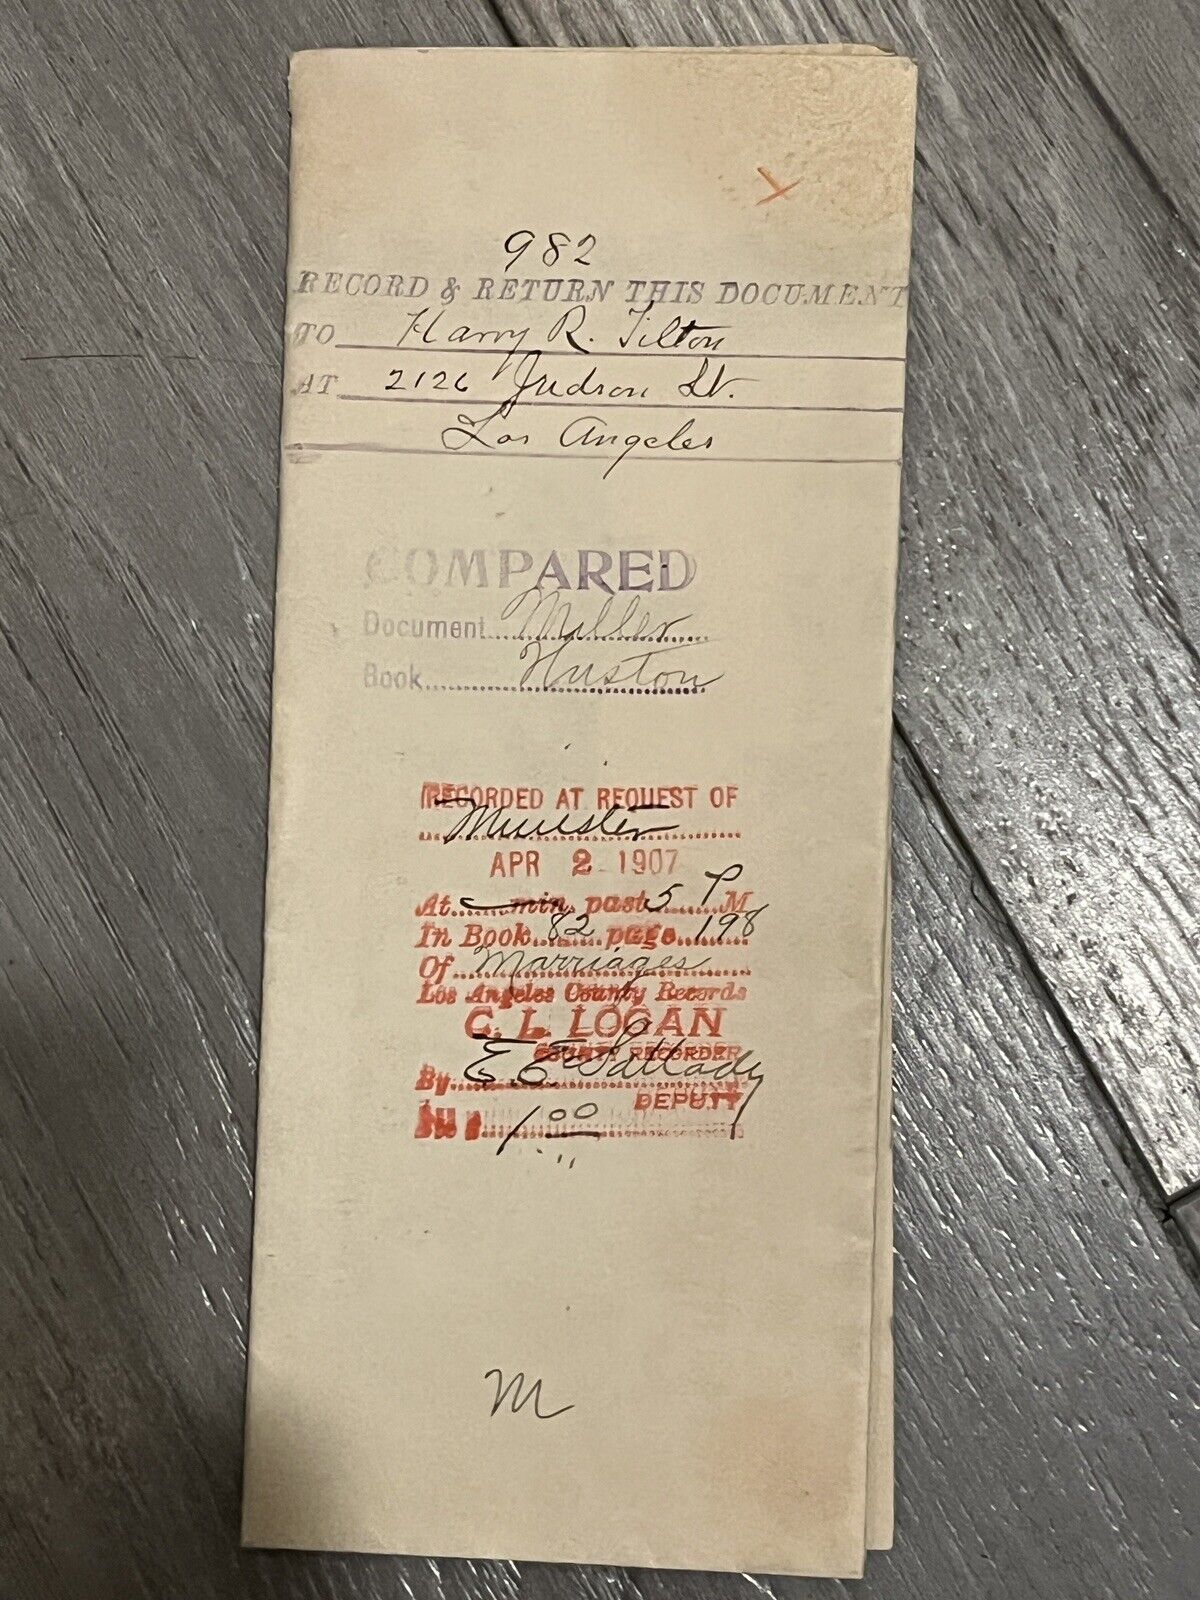 982
RECORD & RETURN THIS DOCUMENT
TO Harry R. Tilton
AT 2126 Judson St.
Los Angeles
COMPARED
Document Miller
Book Huston
RECORDED AT REQUEST OF
Minister
APR 2 1907
At min. past 5 P M
In Book 82 page 198
Of Marriages
Los Angeles County Records
C. L. LOGAN
COUNTY RECORDER
By E. E.
DEPUTY
1.00
M